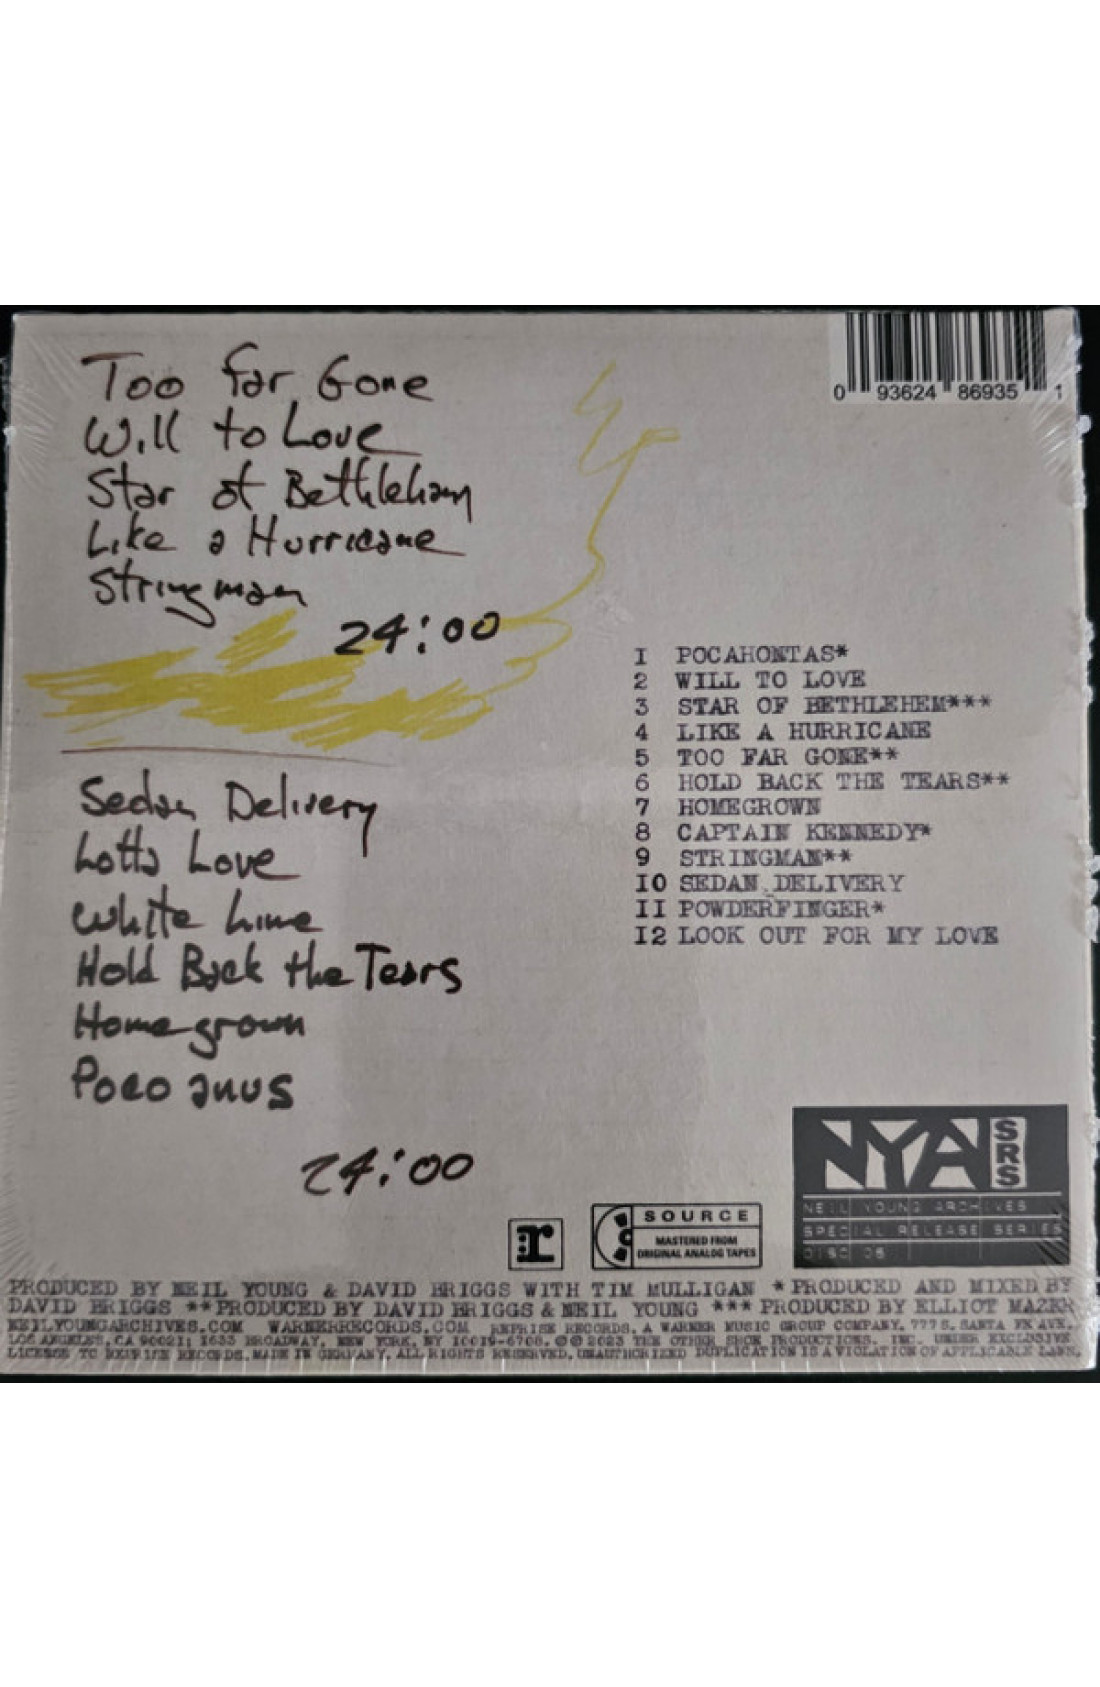 Too far Gone
Will to Love
Star of Bethleham
Like a Hurricane
Stringman
24:00
Sedan Delivery
Lotta Love
White Line
Hold Back the Tears
Homegrown
Poco anus
24:00
0 93624 86935 1
1 POCAHONTAS*
2 WILL TO LOVE
3 STAR OF BETHLEHEM***
4 LIKE A HURRICANE
5 TOO FAR GONE**
6 HOLD BACK THE TEARS**
7 HOMEGROWN
8 CAPTAIN KENNEDY*
9 STRINGMAN**
10 SEDAN DELIVERY
11 POWDERFINGER*
12 LOOK OUT FOR MY LOVE
NYA SRS
NEIL YOUNG ARCHIVES
SPECIAL RELEASE SERIES
DISC 05
r
SOURCE
MASTERED FROM
ORIGINAL ANALOG TAPES
PRODUCED BY NEIL YOUNG & DAVID BRIGGS WITH TIM MULLIGAN * PRODUCED AND MIXED BY
DAVID BRIGGS **PRODUCED BY DAVID BRIGGS & NEIL YOUNG *** PRODUCED BY ELLIOT MAZER
NEILYOUNGARCHIVES.COM WARNERRECORDS.COM REPRISE RECORDS, A WARNER MUSIC GROUP COMPANY, 777 S. SANTA FE AVE,
LOS ANGELES, CA 90021; 1633 BROADWAY, NEW YORK, NY 10019-6708. ℗© 2023 THE OTHER SHOE PRODUCTIONS, INC. UNDER EXCLUSIVE
LICENSE TO REPRISE RECORDS. MADE IN GERMANY. ALL RIGHTS RESERVED. UNAUTHORIZED DUPLICATION IS A VIOLATION OF APPLICABLE LAWS.